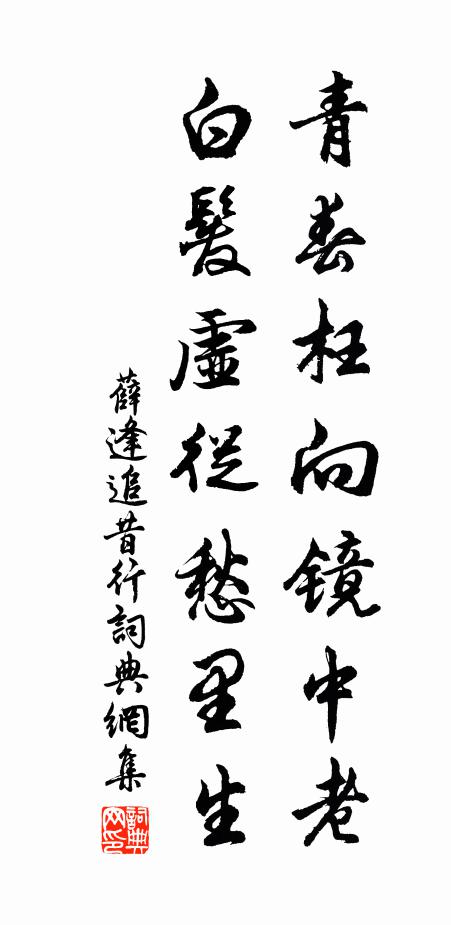 青春枉向镜中老
白髮虛從愁里生
薛逢追昔行詞典網集
詞典網印